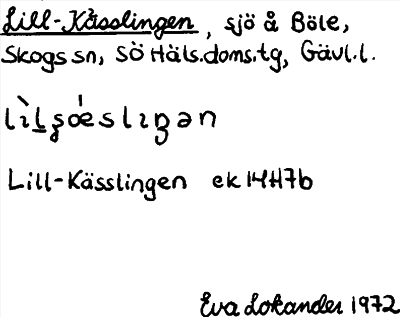 Lill-Kässlingen, sjö å Böle,
Skogs sn, SÖ Häls.doms.tg, Gävl.l.
Lill-Kässlingen ek 14H7b
Eva Lokander 1972